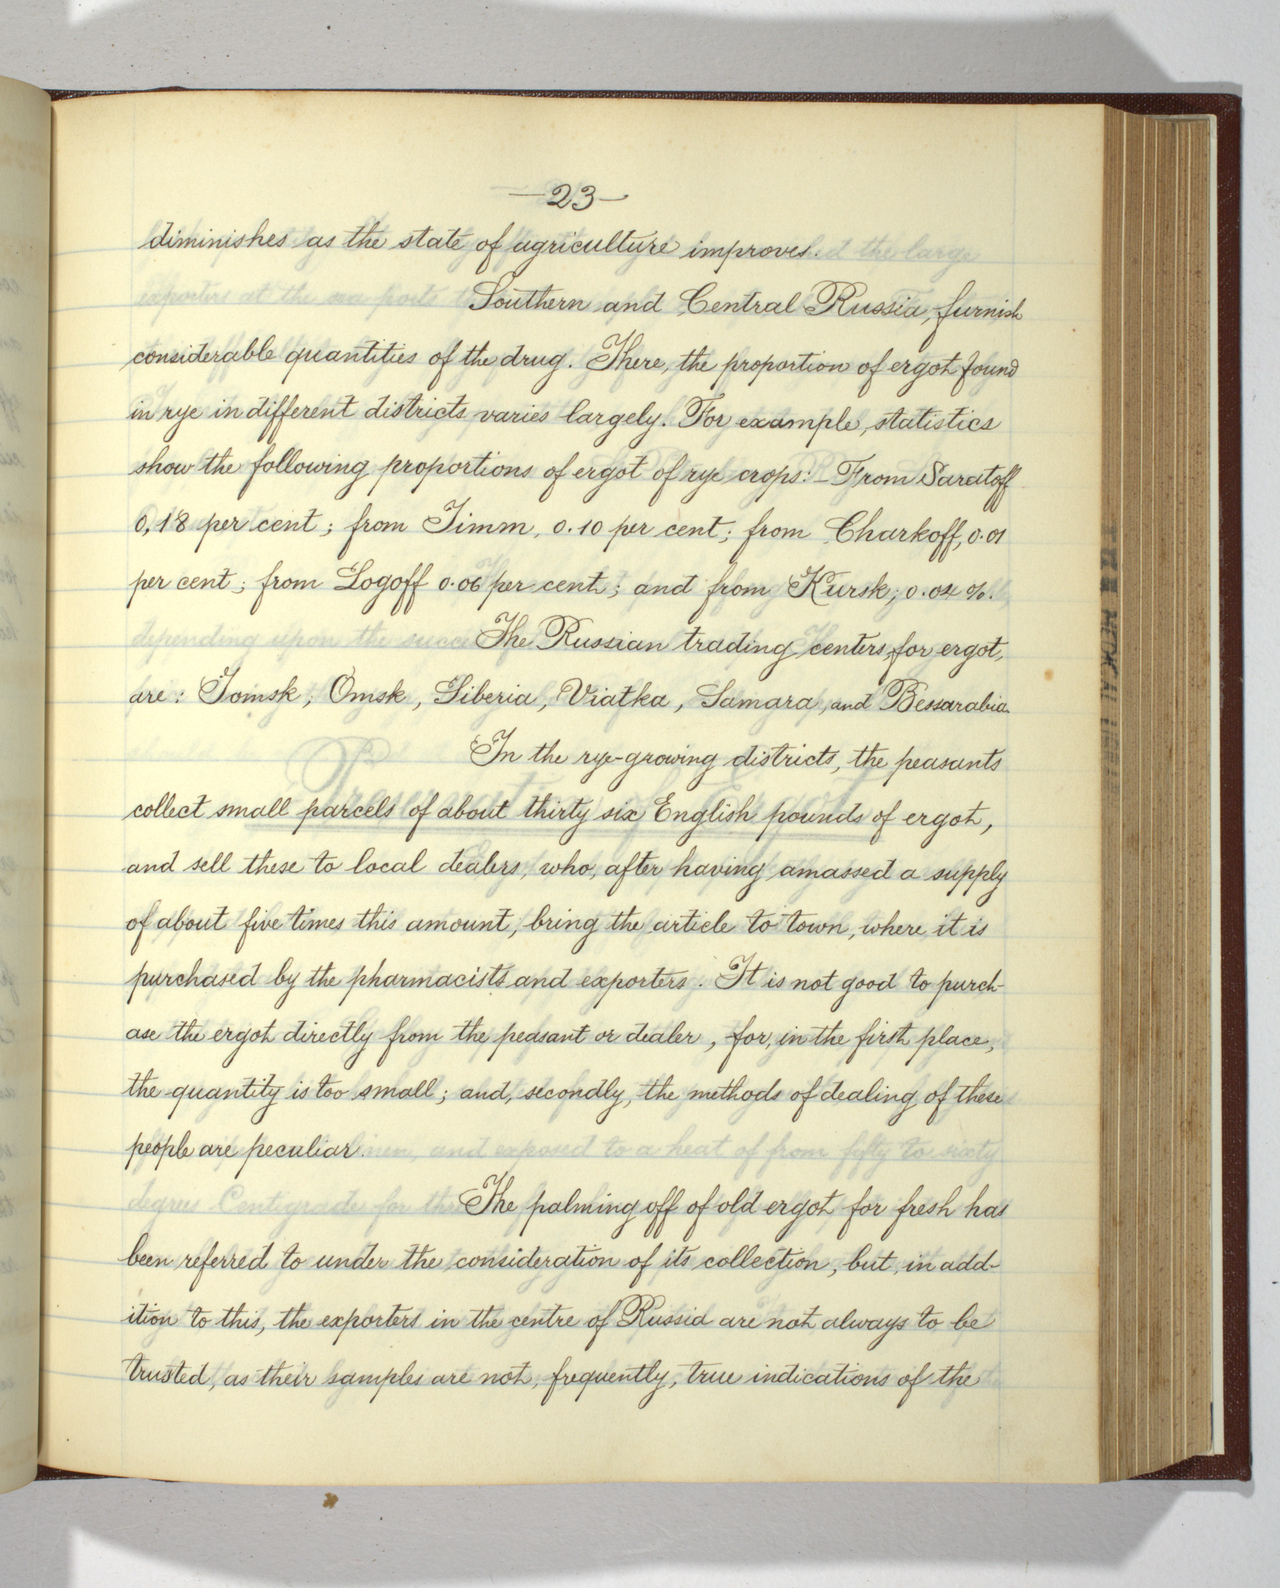 —23—
diminishes as the state of agriculture improves.
Southern and Central Russia, furnish
considerable quantities of the drug. There, the proportion of ergot found
in rye in different districts varies largely. For example, statistics
show the following proportions of ergot of rye crops:— From Saratoff
0,18 per cent; from Timm, 0.10 per cent; from Charkoff, 0.01
per cent; from Logoff 0.06 per cent; and from Kursk, 0.04 %.
The Russian trading centers, for ergot,
are: Tomsk, Omsk, Siberia, Viatka, Samara, and Bessarabia.
In the rye-growing districts, the peasants
collect small parcels of about thirty six English pounds of ergot,
and sell these to local dealers, who, after having amassed a supply
of about five times this amount, bring the article to town, where it is
purchased by the pharmacists and exporters. It is not good to purch-
ase the ergot directly from the peasant or dealer, for, in the first place,
the quantity is too small; and, secondly, the methods of dealing of these
people are peculiar.
The palming off of old ergot for fresh has
been referred to under the consideration of its collection, but, in add-
ition to this, the exporters in the centre of Russia are not always to be
trusted, as their samples are not, frequently, true indications of the